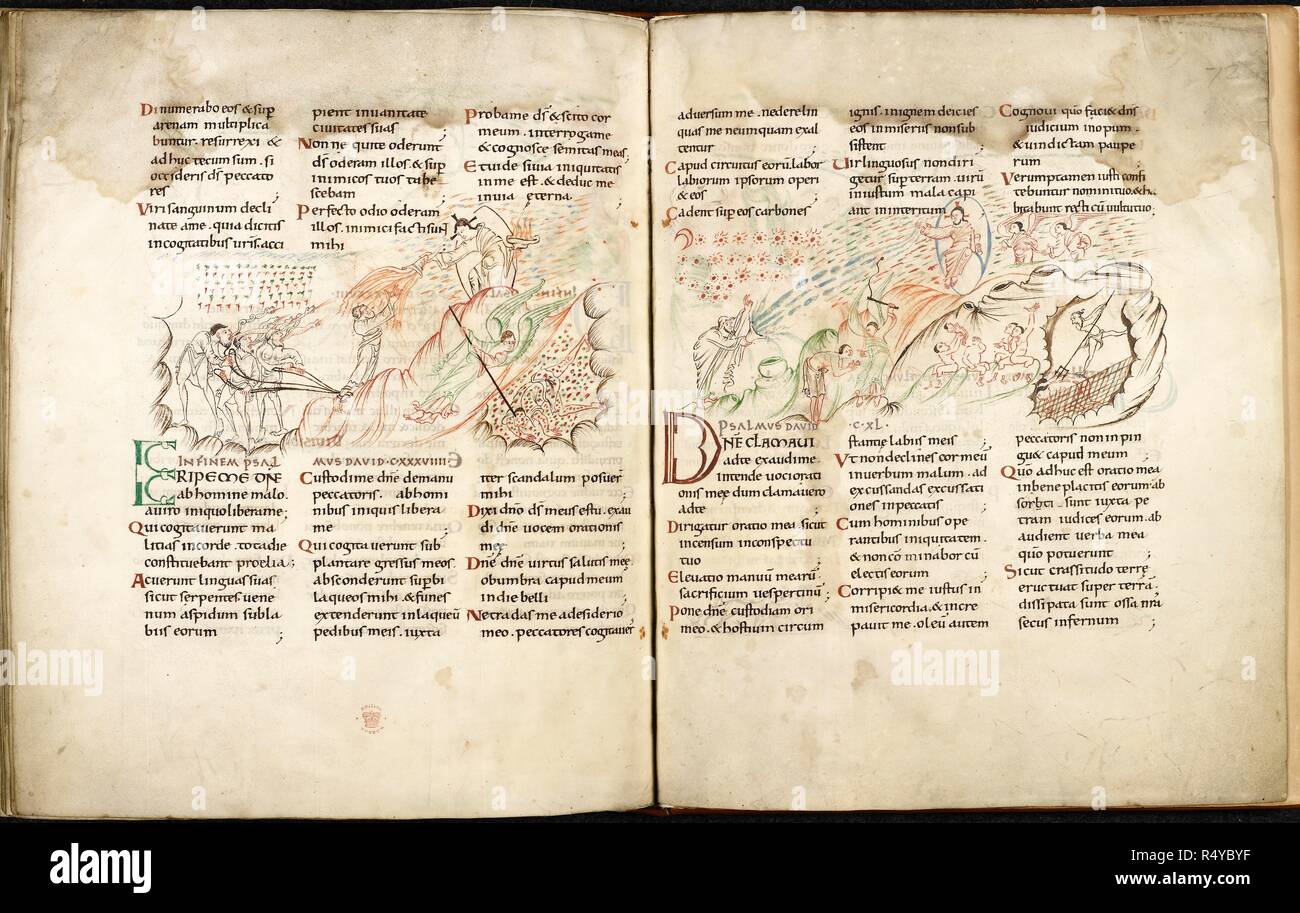 Dinumerabo eos & sup
arenam multiplica
buntur. resurrexi &
adhuc tecum sum. si
occideris ds peccato
res ;
Viri sanguinum decli
nate ame. quia dicitis
incogitatibus uris. acci
pient inuanitate
ciuitates suas ;
Non ne qui te oderunt
ds oderam illos & sup
inimicos tuos tabe
scebam ;
Perfecto odio oderam
illos. inimici facti sunt
mihi ;
Proba me ds & scito cor
meum. interroga me
& cognosce semitas meas ;
Et uide si uia iniquitatis
in me est. & deduc me
inuia eterna.
INFINEM PSAL
MUS DAVID . C. XXXVIIII.
ERIPE ME DNE
ab homine malo.
auiro iniquo libera me ;
Qui cogitauerunt ma
litias incorde. tota die
constituebant proelia ;
Acuerunt linguas suas
sicut serpentes uene
num aspidum sub la
biis eorum ;
Custodi me dne demanu
peccatoris. ab homi
nibus iniquis libera
me ;
Qui cogitauerunt sub
plantare gressus meos.
absconderunt supbi
laqueos mihi. & funes
extenderunt inlaqueu
pedibus meis. iuxta
iter scandalum posuer
mihi ;
Dixi dno ds meus es tu. exau
di dne uocem orationis
meę ;
Dne dne uirtus salutis meę.
obumbra capud meum
in die belli ;
Ne tradas me adesiderio
meo. peccatores cogitauer
aduersum me. ne derelin
quas me ne umquam exal
tentur ;
Capud circuitus eoru. labor
labiorum ipsorum operi
& eos ;
Cadent sup eos carbones
ignis. in ignem deicies
eos in miseriis non sub
sistent ;
Uir linguosus non diri
getur sup terram. uiru
iniustum mala capi
ant in interitum ;
Cognoui quo faci & dns
iudicium inopum.
& uindictam paupe
rum ;
Verumptamen iusti confi
tebuntur nomini tuo. & ha
bitabunt recti cu uultu tuo ;
PSALMUS DAVID
. C. XL .
DNE CLAMAUI
ad te exaudi me.
intende uoci orati
onis meę dum clamauero
ad te ;
Dirigatur oratio mea sicut
incensum in conspectu
tuo ;
Eleuatio manuu mearu.
sacrificium uespertinu ;
Pone dne custodiam ori
meo. & hostium circum
stantię labiis meis ;
Ut non declines cor meu
in uerbum malum. ad
excussandas excussati
ones in peccatis ;
Cum hominibus ope
rantibus iniquitatem.
& non cominabor cu
electis eorum ;
Corripi & me iustus in
misericordia. & incre
pauit me. oleu autem
peccatoris non inpin
gu& capud meum ;
Quo adhuc est oratio mea
in beneplacitis eorum. ab
sorbti sunt iuxta pe
tram iudices eorum. ab
audient uerba mea
quo potuerunt ;
Sicut crassitudo terrę
eructuat super terra.
dissipata sunt ossa nra
secus infernum ;
alamy
Image ID: R4YBYF
www.alamy.com